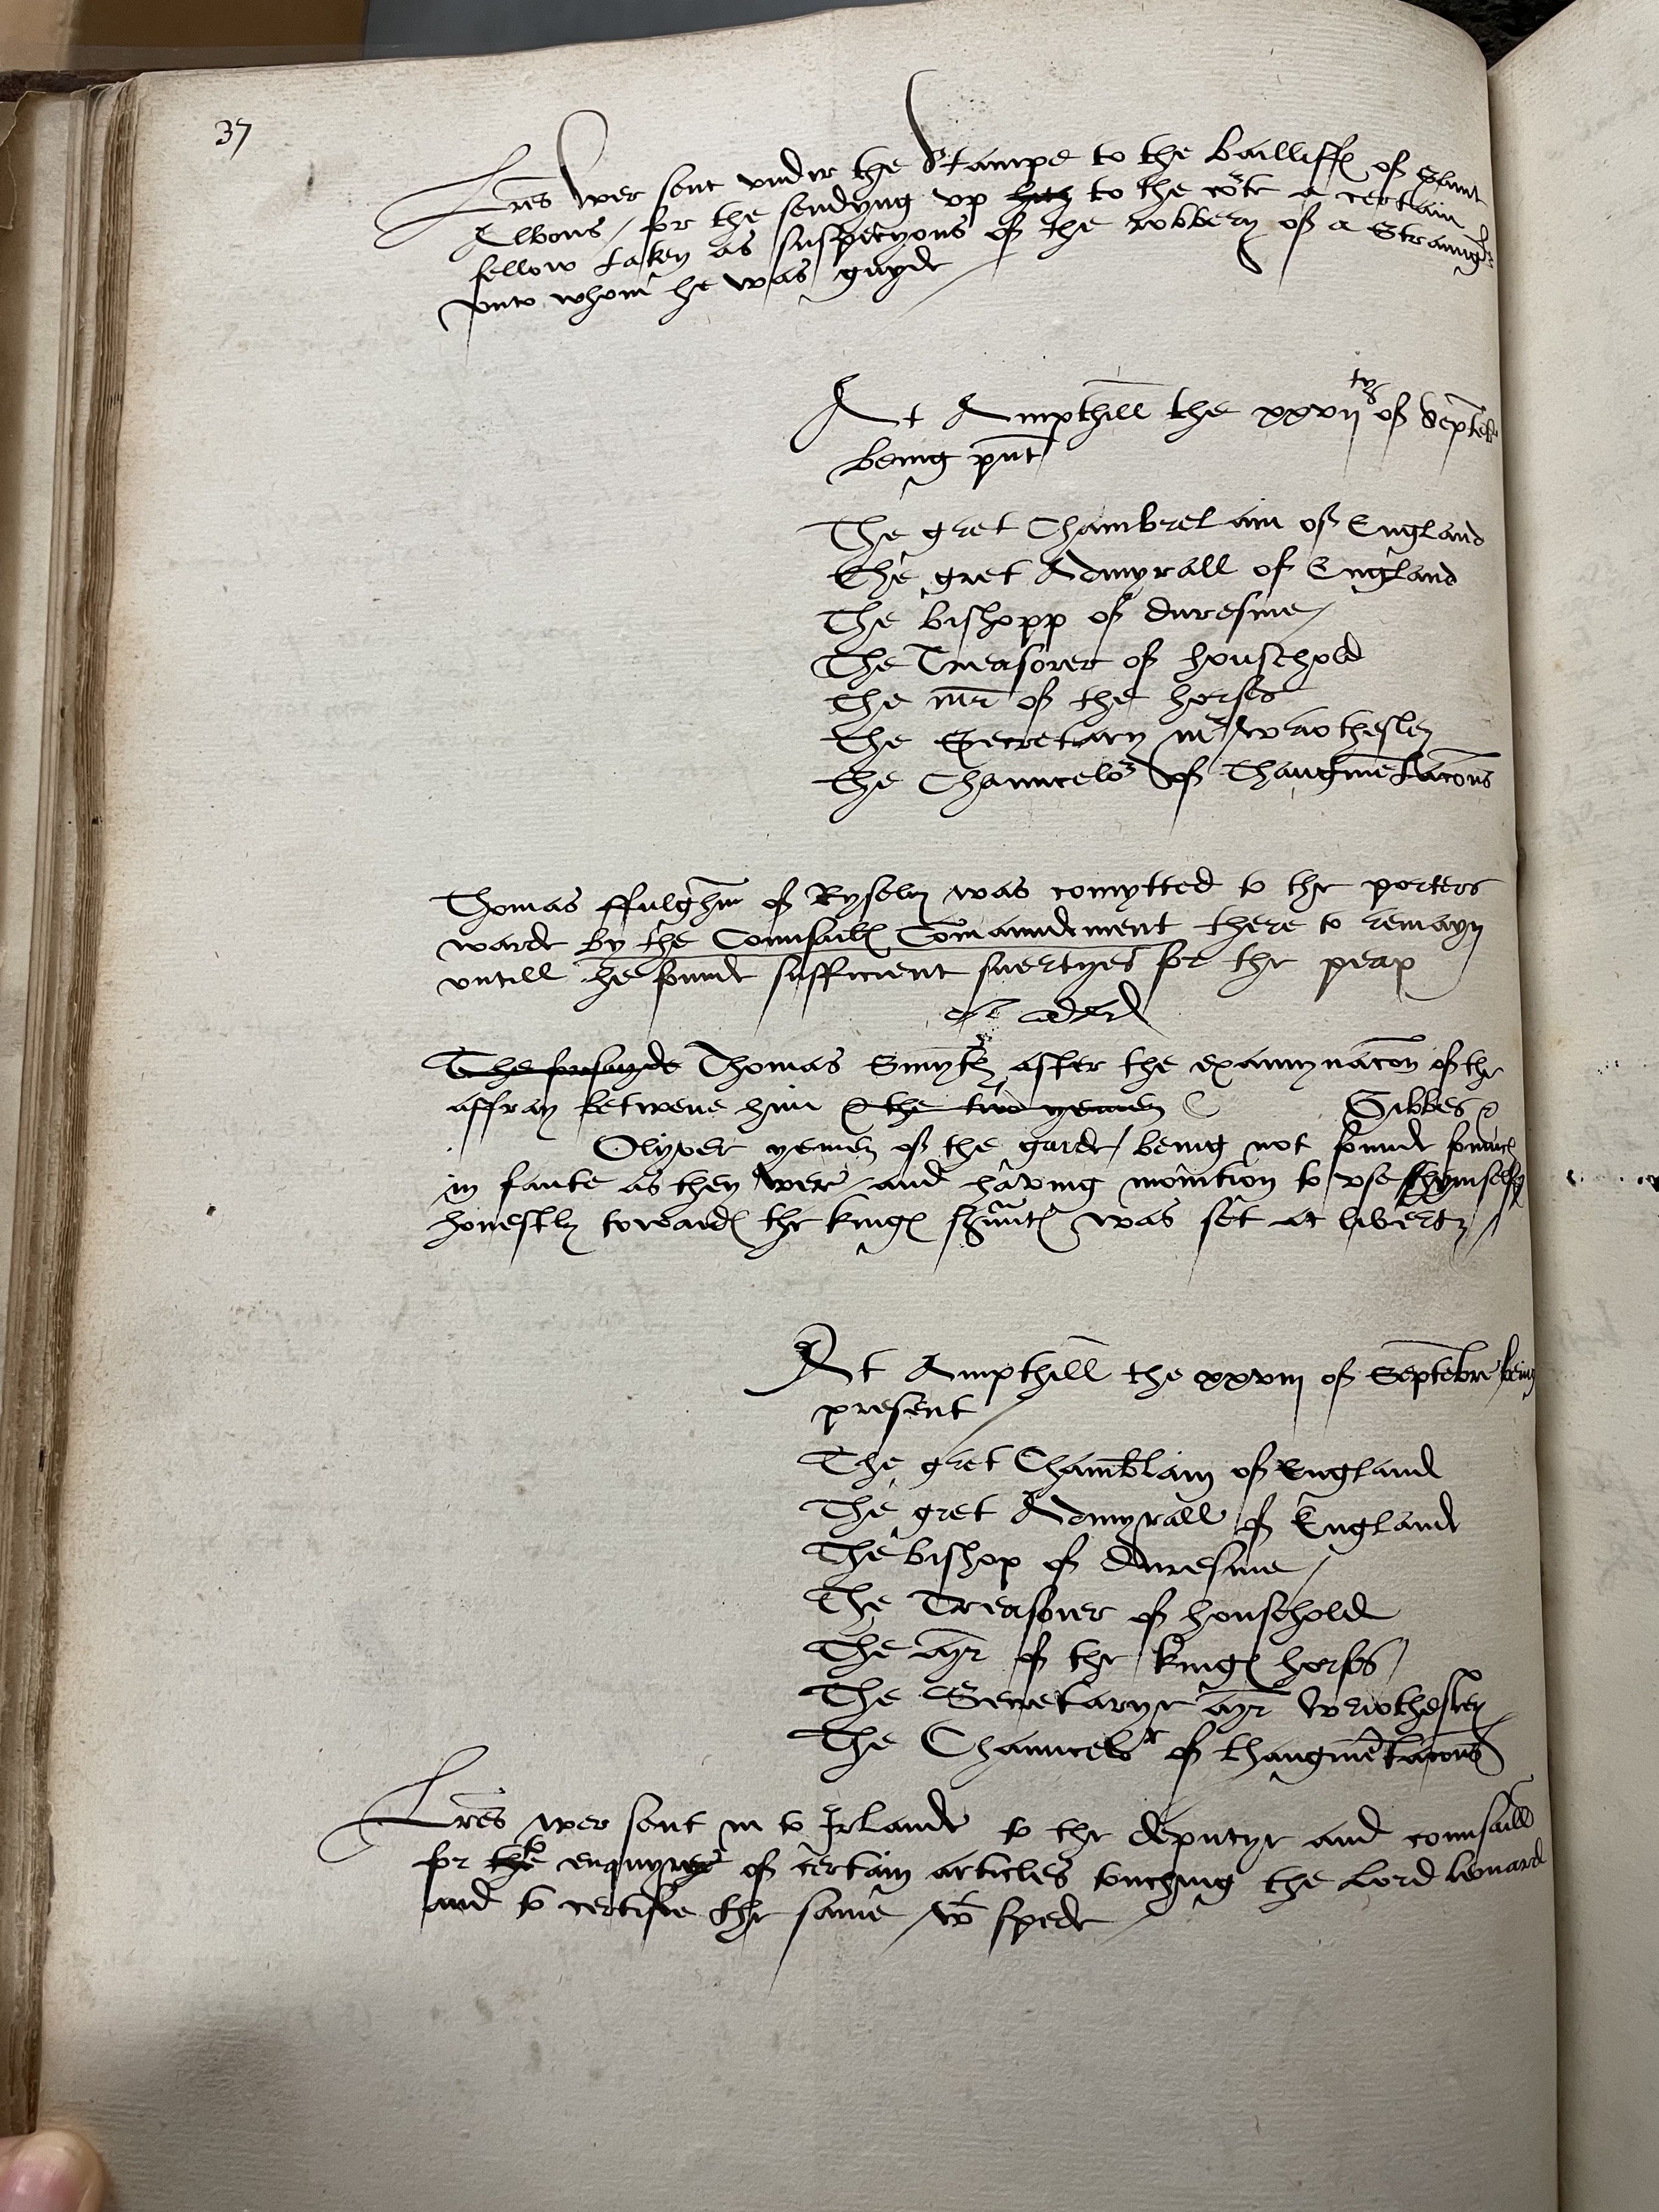 37
Lres wer sent vnder the Stampe to the bailliffs of Saint
Albons / for the sendyng vp to the cort a certain
fellow taken as suspecyous of the robbery of a Straunger
vnto whom he was guyde
At Ampthill the xxvijty of Septebr
being pnt
The gret Chambrelain of England
The gret Admyrall of England
The bishopp of duresme /
The Treasorer of houschold
The mr of the horses
The Secretary mr wriothesley
The Chauncelor of Thaugmetacons
Thomas ffulghm of Ryseley was comytted to the porters
warde by the Counsails Comaundement there to remayn
vntill he founde sufficient suertyes for the peax
The forsayde Thomas Smyth after the examynacon of the
affray betwene him & the two yemen Gibbes &
Olyver yemen of the garde / being not founde somuch
in faute as they wer and having monition to vse hymself
honestly towards the kings sruntes was set at liberty /
At Ampthill the xxviij of Septebre being
present
The gret Chamblain of England
The gret Admyrall of Englande
The bishop of duresme /
The Treasorer of houschold
The mr of the kings horses /
The Secretarye mr wriothesley
The Chauncelor of thaugmetacons
Lres wer sent in to Irlande to the deputye and counsaill
for to enquyre of certain articles touching the Lord Leonard
and to certifie the same wt spede